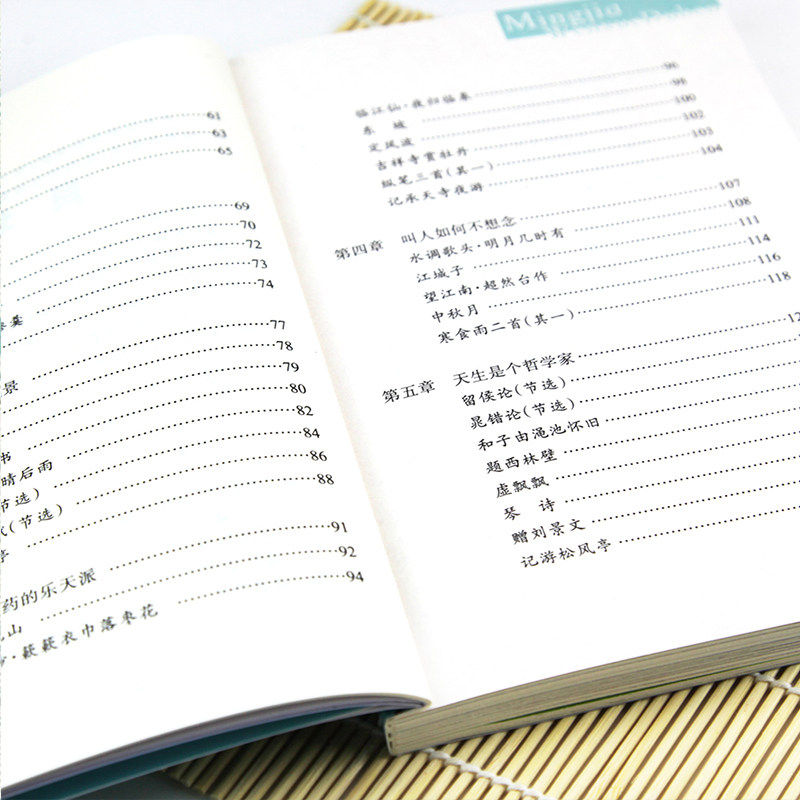 61
63
65
69
70
72
73
74
羹
77
78
景
79
80
书
82
晴后雨
84
节选)
86
(节选)
88
亭
药的乐天派 91
山 92
·簌簌衣巾落枣花 94
Mingjia
临江仙·夜归临皋 96
东 坡 98
定风波 100
吉祥寺赏牡丹 102
纵笔三首(其一) 103
记承天寺夜游 104
第四章 叫人如何不想念 107
水调歌头·明月几时有 108
江城子 111
望江南·超然台作 114
中秋月 116
寒食雨二首(其一) 118
第五章 天生是个哲学家 12
留侯论(节选)
晁错论(节选)
和子由渑池怀旧
题西林壁
虚飘飘
琴 诗
赠刘景文
记游松风亭